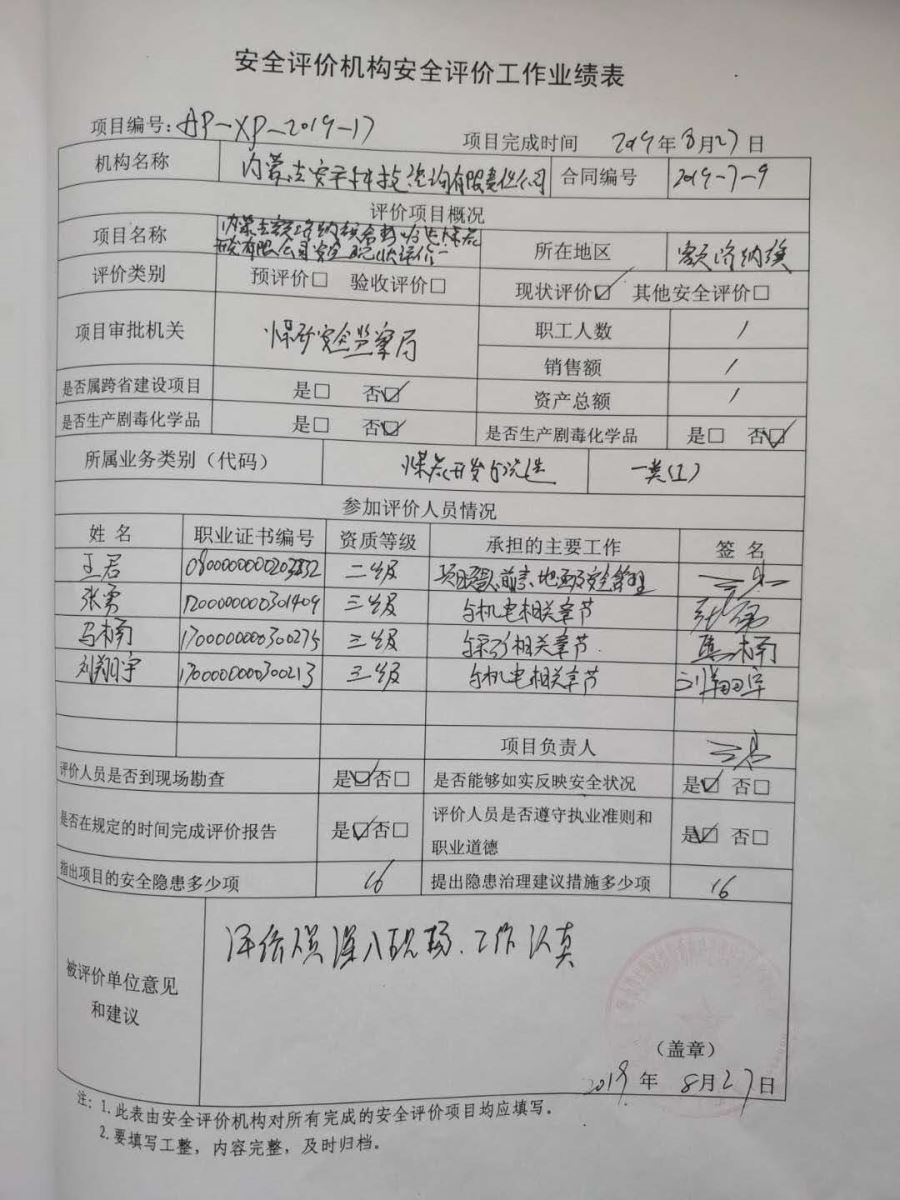 安全评价机构安全评价工作业绩表
项目编号:AP-XP-2019-17 项目完成时间 2019年8月27日
机构名称 内蒙古安平科技咨询有限责任公司 合同编号 2019-7-9
评价项目概况
项目名称 内蒙古额济纳旗 煤炭
有限公司安全现状评价 所在地区 额济纳旗
评价类别 预评价□ 验收评价□ 现状评价☑ 其他安全评价□
项目审批机关 煤矿安全监察局 职工人数 /
销售额 /
是否属跨省建设项目 是□ 否☑ 资产总额 /
是否生产剧毒化学品 是□ 否☑ 是否生产剧毒化学品 是□ 否☑
所属业务类别(代码) 煤炭开发与洗选 一类(1)
参加评价人员情况
姓名 职业证书编号 资质等级 承担的主要工作 签名
王君 二级 前言、地面及安全管理 王君
张勇 1200000000301409 三级 与机电相关章节 张勇
马楠 1700000000300275 三级 与采矿相关章节 马楠
刘翔宇 1700000000300213 三级 与机电相关章节 刘翔宇
项目负责人 王君
评价人员是否到现场勘查 是☑否□ 是否能够如实反映安全状况 是☑ 否□
是否在规定的时间完成评价报告 是☑否□ 评价人员是否遵守执业准则和
职业道德 是☑ 否□
指出项目的安全隐患多少项 16 提出隐患治理建议措施多少项 16
被评价单位意见
和建议
评价人员深入现场、工作认真
(盖章)
2019年 8月27日
注:1.此表由安全评价机构对所有完成的安全评价项目均应填写。
2.要填写工整,内容完整,及时归档。